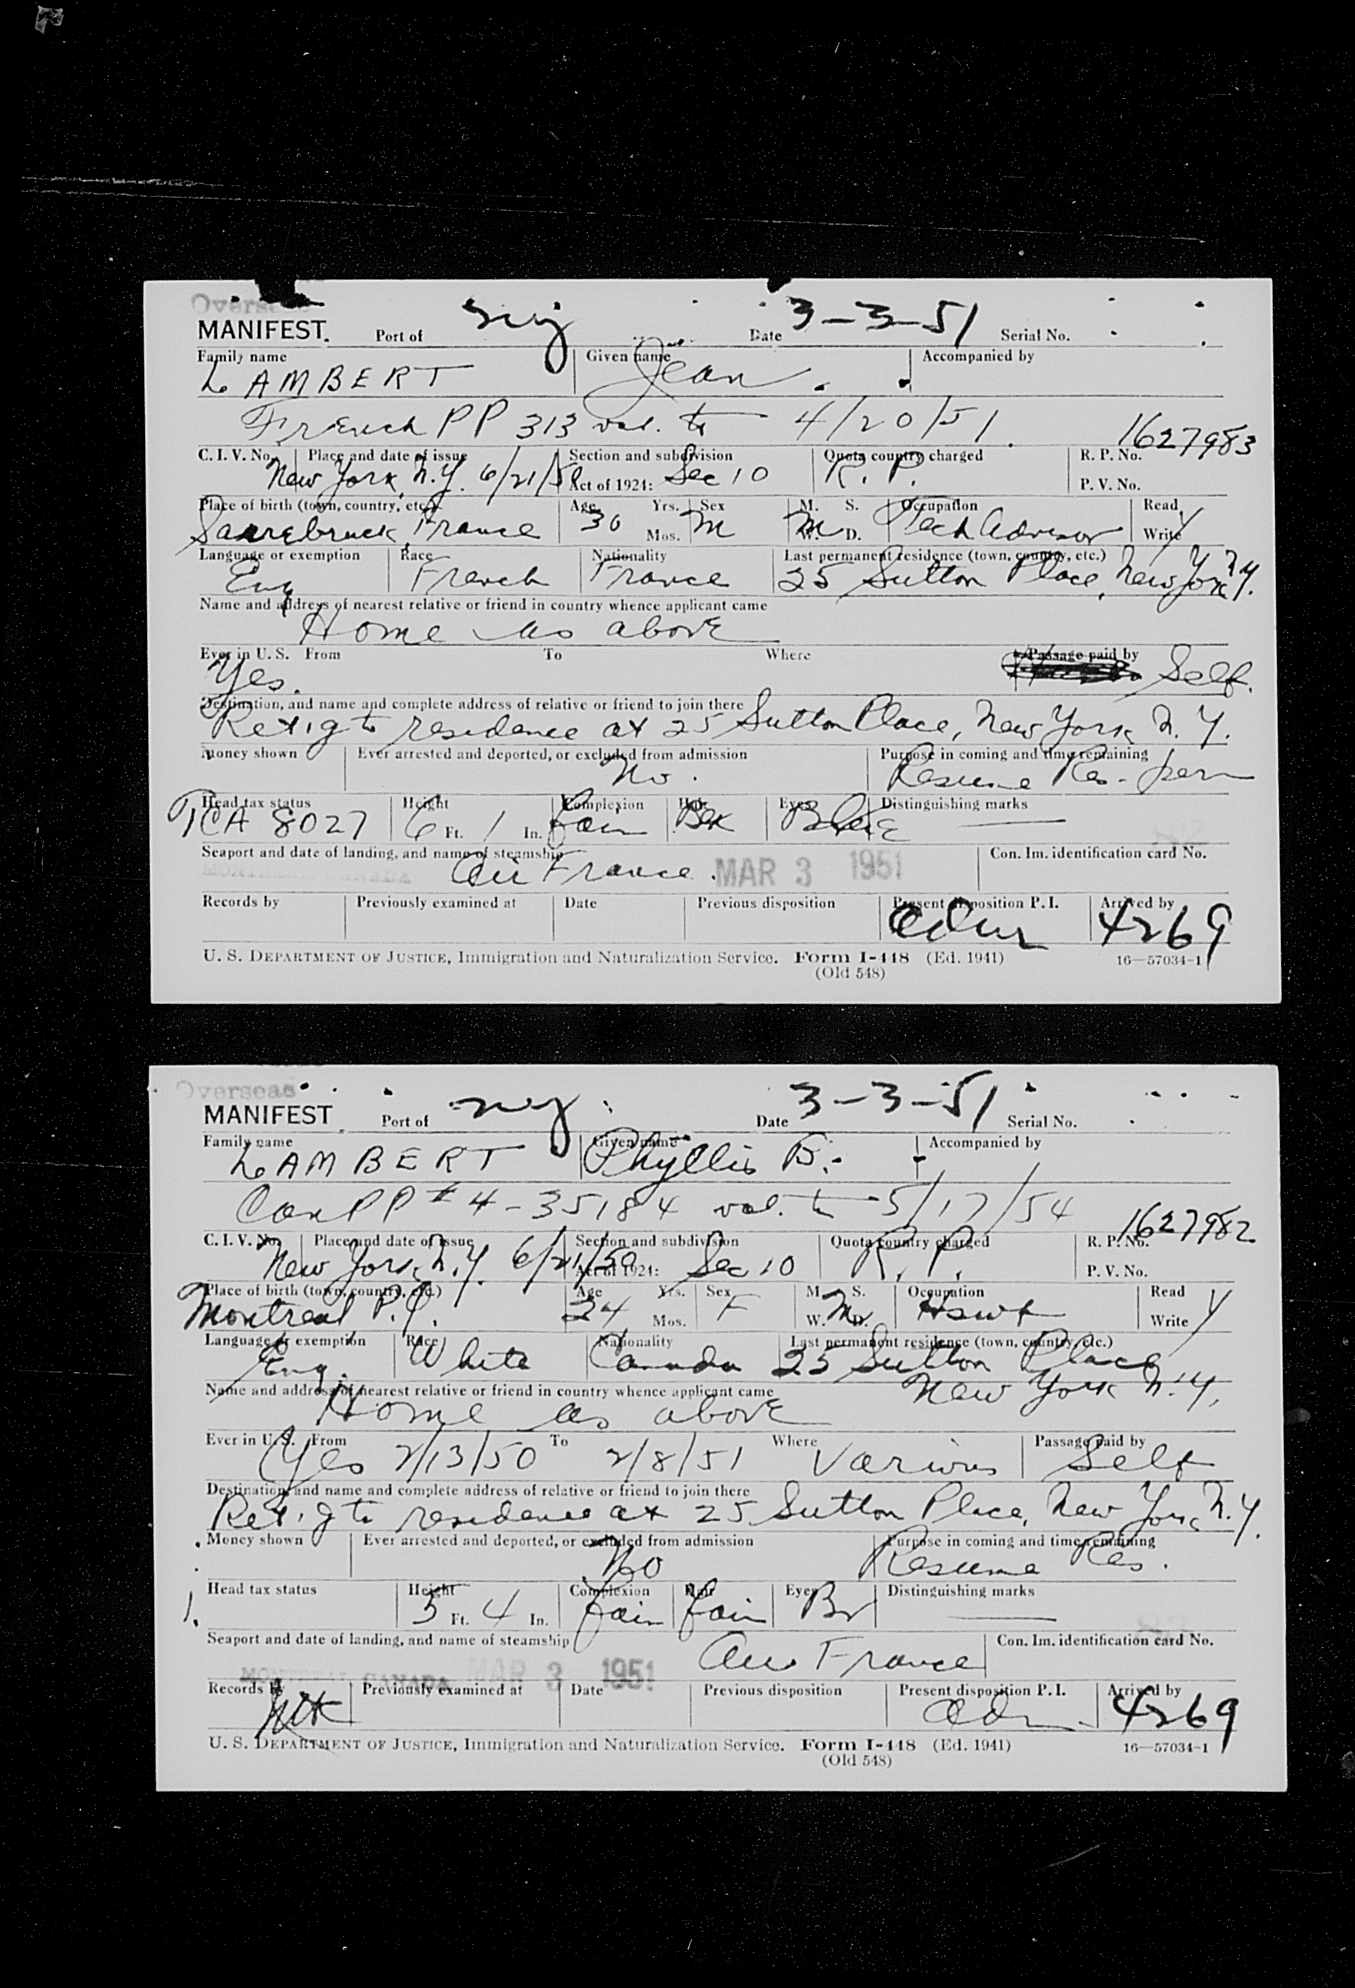 Overseas
MANIFEST. Port of NY Date 3-3-51 Serial No.
Family name Given name Accompanied by
LAMBERT Jean
French PP 313 val. to 4/20/51. 1627983
C. I. V. No. Place and date of issue Section and subdivision Quota country charged R. P. No.
New York, N.Y. 6/21/50 Act of 1924: Sec 10 R. P. P. V. No.
Place of birth (town, country, etc.) Age Yrs. Sex M. S. Occupation Read
Saarebruck, France 30 Mos. M M W. D. Tech Advisor Write Y
Language or exemption Race Nationality Last permanent residence (town, country, etc.)
Eng French France 25 Sutton Place, New York N.Y.
Name and address of nearest relative or friend in country whence applicant came
Home as above
Ever in U. S. From To Where Passage paid by
Yes. Self.
Destination, and name and complete address of relative or friend to join there
Ret'g to residence at 25 Sutton Place, New York N. Y.
Money shown Ever arrested and deported, or excluded from admission Purpose in coming and time remaining
No. Resume Res. perm
Head tax status Height Complexion Hair Eyes Distinguishing marks
TCA 8027 6 Ft. 1 In. fair Blk Blue —
Seaport and date of landing, and name of steamship Con. Im. identification card No.
MONTREAL CANADA Air France. MAR 3 1951
Records by Previously examined at Date Previous disposition Present disposition P. I. Arrived by
Adm 4269
U. S. DEPARTMENT OF JUSTICE, Immigration and Naturalization Service. Form I-448 (Ed. 1941) 16—57034-1
(Old 548)
Overseas
MANIFEST Port of NY. Date 3-3-51 Serial No.
Family name Given name Accompanied by
LAMBERT Phyllis B. -
Can PP # 4-35184 val. to 5/17/54 1627982
C. I. V. No. Place and date of issue Section and subdivision Quota country charged R. P. No.
New York, N.Y. 6/21/50 Act of 1924: Sec 10 R. P. P. V. No.
Place of birth (town, country, etc.) Age Yrs. Sex M. S. Occupation Read
Montreal P.Q. 24 Mos. F M W. D. Hswf Write Y
Language or exemption Race Nationality Last permanent residence (town, country, etc.)
Eng. White Canada 25 Sutton Place
Name and address of nearest relative or friend in country whence applicant came New York N.Y.
Home as above
Ever in U. S. From To Where Passage paid by
Yes 2/13/50 2/8/51 Various Self
Destination, and name and complete address of relative or friend to join there
Ret'g to residence at 25 Sutton Place, New York N.Y.
Money shown Ever arrested and deported, or excluded from admission Purpose in coming and time remaining
No Resume Res.
Head tax status Height Complexion Hair Eyes Distinguishing marks
1. 5 Ft. 4 In. fair fair Br —
Seaport and date of landing, and name of steamship Con. Im. identification card No.
MONTREAL CANADA MAR 3 1951 Air France
Records by Previously examined at Date Previous disposition Present disposition P. I. Arrived by
Adm 4269
U. S. DEPARTMENT OF JUSTICE, Immigration and Naturalization Service. Form I-448 (Ed. 1941) 16—57034-1
(Old 548)